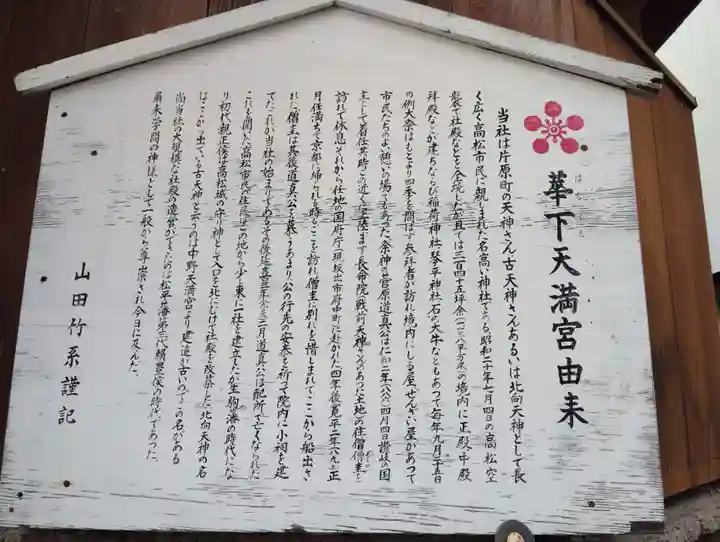 華下天満宮由来
はなしたてんまんぐうゆらい
当社は片原町の天神さん古天神さんあるいは北向天神として長
く広く高松市民に親しまれた名高い神社である。昭和二十年七月四日の高松空
襲で社殿などを全焼したが且ては三百四十五坪余(一一三八平方米)の境内に正殿、中殿
拝殿などが建ちならび稲荷神社、琴平神社、石の大牛などもあって毎年九月二十五日
の例大祭はもとより四季を問はず参拝者が訪れ境内にしる屋、ぜんざい屋があって
市民たちのよい憩いの場でもあった。祭神の菅原道真公は仁和二年(八八六)四月四日讃岐の国
主として着任共時この近くに上陸、まず長命院(戦前天神さんのあった土地)の住僧僧圭を
訪れて休息、それから任地の国府庁(現坂出市府中町)に赴かれた。四年後寛平二年(八九〇)正
月任満ちて京都に帰られる時、ここを訪れ僧圭に別れを惜しまれて、ここから船出さ
れた。僧圭は其後道真公を慕うあまり公の行先の安泰を祈って院内に小祠を建
てたこれが当社の始まりである。その後延喜三年(九〇三)二月道真公は配所で亡くなられた
これを聞いた高松市民や住民はこの地から少し東に一社を建立したが生駒藩の時代にな
り初代親正侯は高松城の守り神として入口を北にむけて社殿を改築した。北向天神の名
はここから出ている。古天神と云うのは中野天満宮より建造が古いのでこの名がある
尚当社の大規模な社殿の造営ができたのは松平藩第二代頼豊侯の時代であった。
爾来学問の神様として一般から尊崇され今日に及んだ。
山田竹系謹記